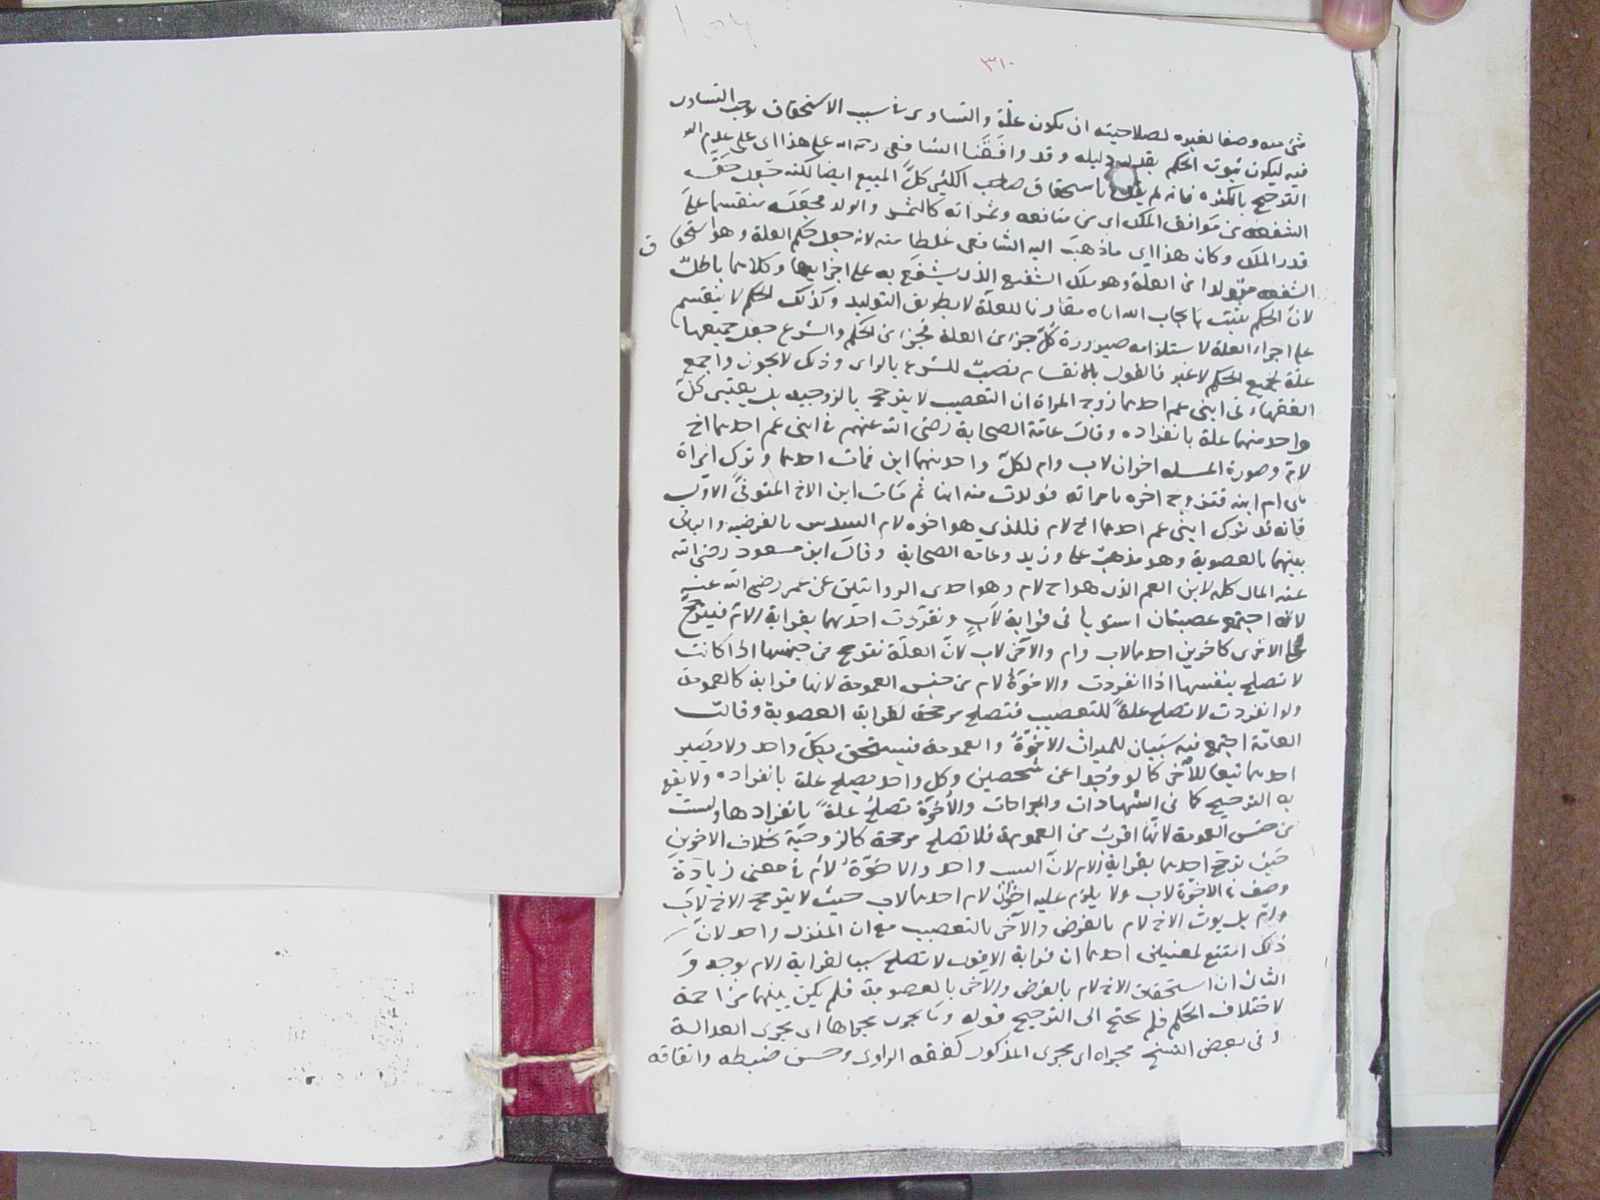 ٣١٠
شئ منه وصفا لغيره لصلاحيته ان يكون علة والتساوى فى سبب الاستحقاق يوجب التساوى
فيه ليكون ثبوت الحكم بقدر دليله وقد وافقنا الشافعى رحمه الله على هذا اى على عدم
الترجيح بالكثرة فانه لم يقل باستحقاق صاحب الكثير كل المبيع ايضا لكنه جعل حق
الشفعة من مرافق الملك اى من منافعه وثمراته كالثمر والولد فجعله منقسما على
قدر الملك وكان هذا اى ماذهب اليه الشافعى غلطا منه لانه جعل حكم العلة وهو استحقاق
الشفعة متولدا من العلة وهو ملك الشفيع الذى يشفع به على اجزائها وكلاهما باطل
لان الحكم يثبت بايجاب الله اياه مقارنا للعلة لا بطريق التوليد وكذلك الحكم لا ينقسم
على اجزاء العلة لاستلزامه صيرورة كل جزء من العلة فجزء من الحكم والشرع جعل جميعها
علة لجميع الحكم لا غير فالقول بالانقسام نصب للشرع بالراى وذلك لا يجوز واجمع
الفقهاء فى ابنى عم احدهما زوج المراة ان التعصيب لا يترجح بالزوجية بل يعتبر كل
واحد منهما علة بانفراده وقال عامة الصحابة رضى الله عنهم فى ابنى عم احدهما اخ
لام وصورة المسله اخوان لاب وام لكل واحد منهما ابن فمات احدهما وترك امراة
هى ام ابنه فتزوج اخوه بامراته فولدت منه ابنا ثم مات ابن الاخ المتوفى الاول
فانه قد ترك ابنى عم احدهما اخ لام فللذى هو اخوه لام السدس بالفرضية والباقى
بينهما بالعصوبة وهو مذهب على وزيد وعامة الصحابة وقال ابن مسعود رضى الله
عنه المال كله لابن العم الذى هو اخ لام وهو احدى الروايتين عن عمر رضى الله عنه
لانه اجتمع عصبتان استويا فى قرابة لاب وتفردت احديهما بقرابة الام فيترجح
على الاخرى كاخوين احدهما لاب وام والآخر لاب لان العلة تترجح من جنسها اذا كانت
لا تصلح بنفسها اذا انفردت والاخوة لام من جنس العمومة لانها قرابة كالعمومة
ولو انفردت لا تصلح علة للتعصيب فتصلح مرجحة لقرابة العصوبة وقالت
العامة اجتمع فيه سببان للميراث الاخوة والعمومة فيستحق بكل واحد ولا يصير
احدهما تبعا للآخر كما لو وجدا عن شخصين وكل واحد يصلح علة بانفراده ولا يقع
به الترجيح كما فى الشهادات والجراحات والاخوة تصلح علة بانفرادها وليست
من جنس العمومة لانها اقرب من العمومة فلا تصلح مرجحة كالزوجية بخلاف الاخوين
حيث ترجح احدهما بقرابة الام لان السبب واحد والاخوة لام فى معنى زيادة
وصف فى الاخوة لاب ولا يلزم عليه اخوان لام احدهما لاب حيث لا يترجح الاخ لاب
وام بل يرث الاخ لام بالفرض والآخر بالتعصيب مع ان المنزل واحد لان
ذلك امتنع لمعنيين احدهما ان قرابة الابوة لا تصلح سببا لقرابة الام بوجه و
الثانى ان استحقاق الاخ لام بالفرض والاخر بالعصوبة فلم يكن بينهما مزاحمة
لاختلاف الحكم فلم يحتج الى الترجيح قوله وما يجرى مجراها اى مجرى العدالة
وفى بعض النسخ مجراه اى مجرى المذكور كفقه الراوى وحسن ضبطه واتقانه